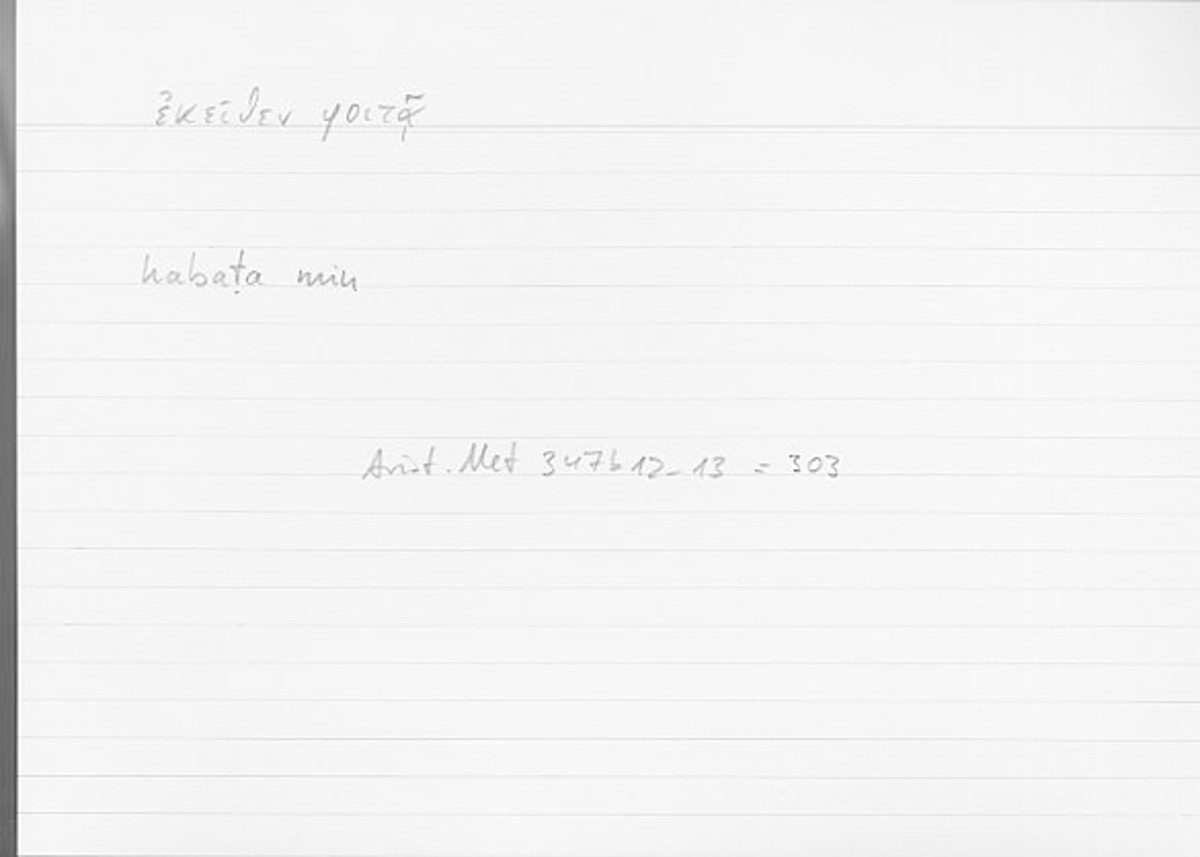 ἐκεῖθεν φοιτᾷ
habaṭa min
Arist. Met 347b12-13 = 303